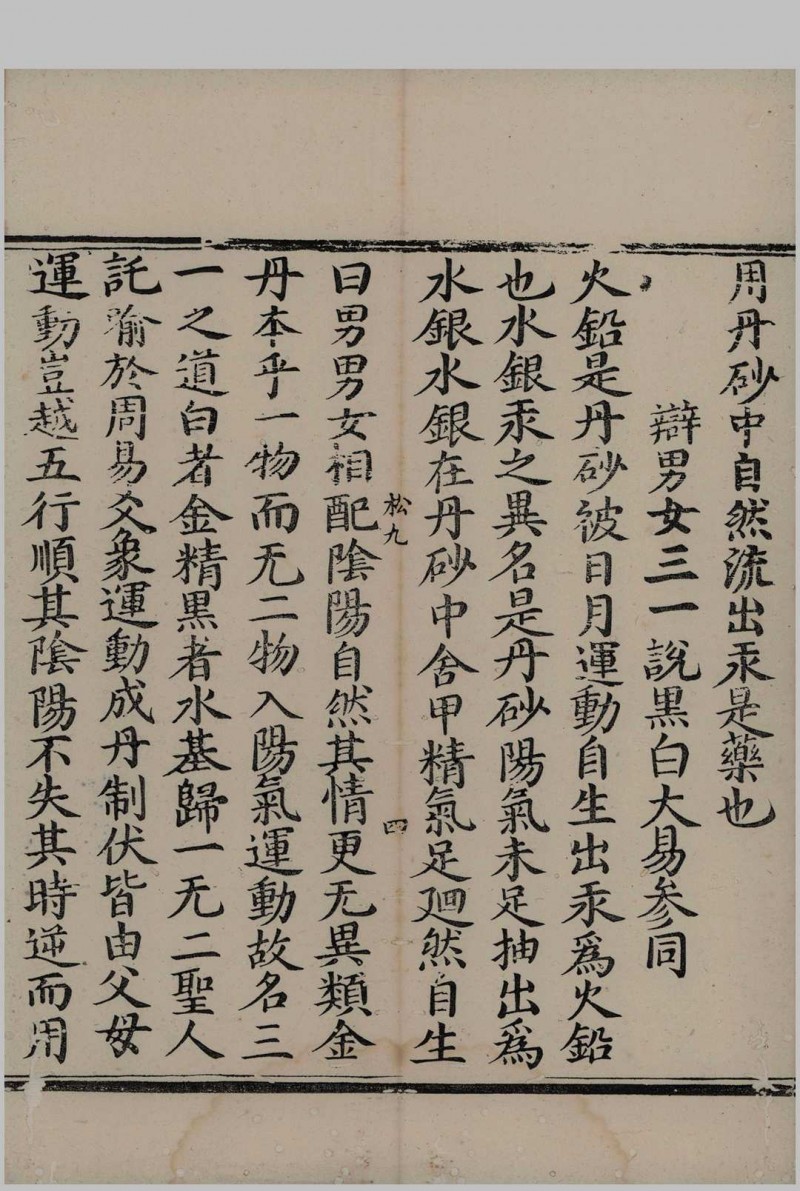 用丹砂中自然流出汞是藥也
辯男女三一說黑白大易參同
火鉛是丹砂彼日月運動自生出汞爲火鉛
也水銀汞之異名是丹砂陽氣未足抽出爲
水銀水銀在丹砂中舍甲精氣足廻然自生
松九
四
曰男男女相配陰陽自然其情更无異類金
丹本乎一物而无二物入陽氣運動故名三
一之道白者金精黑者水基歸一无二聖人
託喻於周易爻象運動成丹制伏皆由父母
運動豈越五行順其陰陽不失其時逆而用